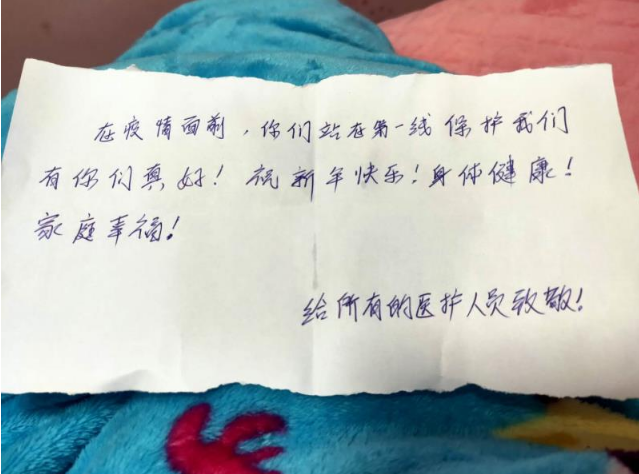 在疫情面前，你们站在第一线保护我们
有你们真好！祝新年快乐！身体健康！
家庭幸福！
给所有的医护人员致敬！